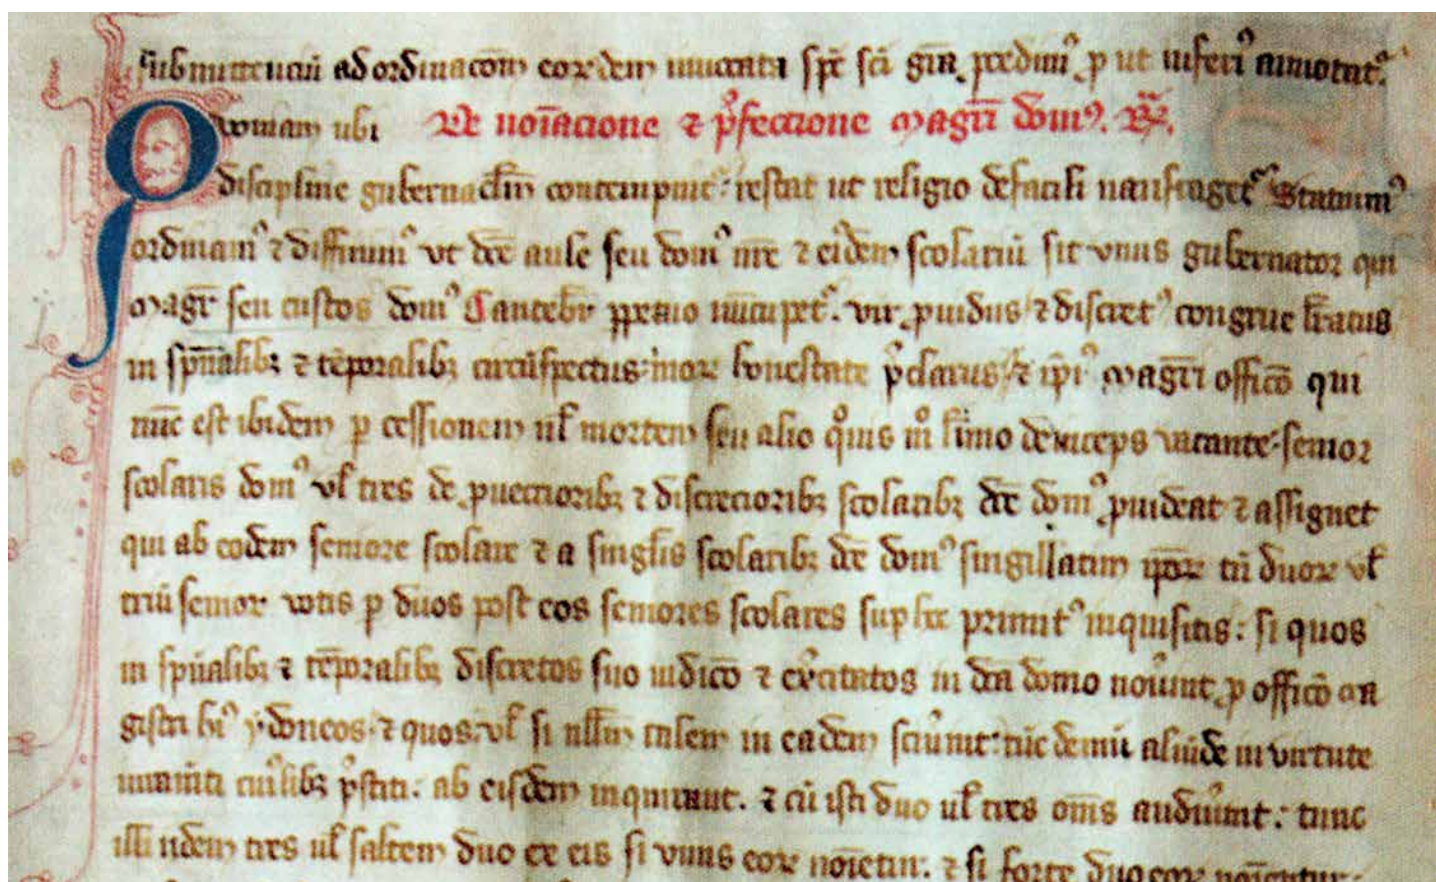 submittencium ad ordinacōm eordem iuuanta spē sc̄i gīa. predim᷒ ꝓ ut inferi᷒ annotat᷒.
Quoniam ubi De noīacione ⁊ p᷒feccione Magrī dom᷒.
discipline gubernaclm̄ contempnit᷒: restat ut religio defacili naufraget᷒ Statuim᷒
ordinam᷒ ⁊ diffinim᷒ vt dc̄e aule seu dom᷒ nr̄e ⁊ eidem scolariū sit vnus gubernator qui
Magr̄ seu custos dom᷒ Cantebr̄ ꝑpetuo nūcupet᷒. vir ꝓuidus ⁊ discret᷒ congrue lr̄atus
in spūalibꝫ ⁊ tēporalibꝫ circūspectus: moꝝ honestate p᷒clarus ⁊ ip̄i᷒ Magrī officō qui
nūc est ibidem ꝑ cessionem ul̄ mortem seu alio q᷒uis m᷒ l̄imo deinceps vacante: senior
scolaris dom᷒ vl̄ tres de ꝓueccioribꝫ ⁊ discrecioribꝫ scolaribꝫ dc̄e dom᷒ ꝓuideat ⁊ assignet
qui ab eodem seniore scolare ⁊ a singl̄is scolaribꝫ dc̄e dom᷒ singillatim ip̄oꝝ tn̄ duoꝝ vl̄
triū senioꝝ votis ꝑ duos post eos seniores scolares sup hc̄ primit᷒ inquisitis: si quos
in spūalibꝫ ⁊ tēporalibꝫ discretos suo iudicō ⁊ exc̄itatos in dc̄a domo nou᷒int ꝓ officō ma
gistri hi᷒ ydoneos ⁊ quos. vl̄ si nllm̄ talem in eadem sciu᷒int: tūc demū aliūde in virtute
iuram̄ti cui᷒libꝫ p᷒stiti: ab eisdem inquirant. ⁊ cū isti duo ul̄ tres om̄s audiu᷒int: tunc
illi iidem tres ul̄ saltem duo ex eis si vnus eoꝝ noīetur. ⁊ si forte duo eoꝝ noīentur: